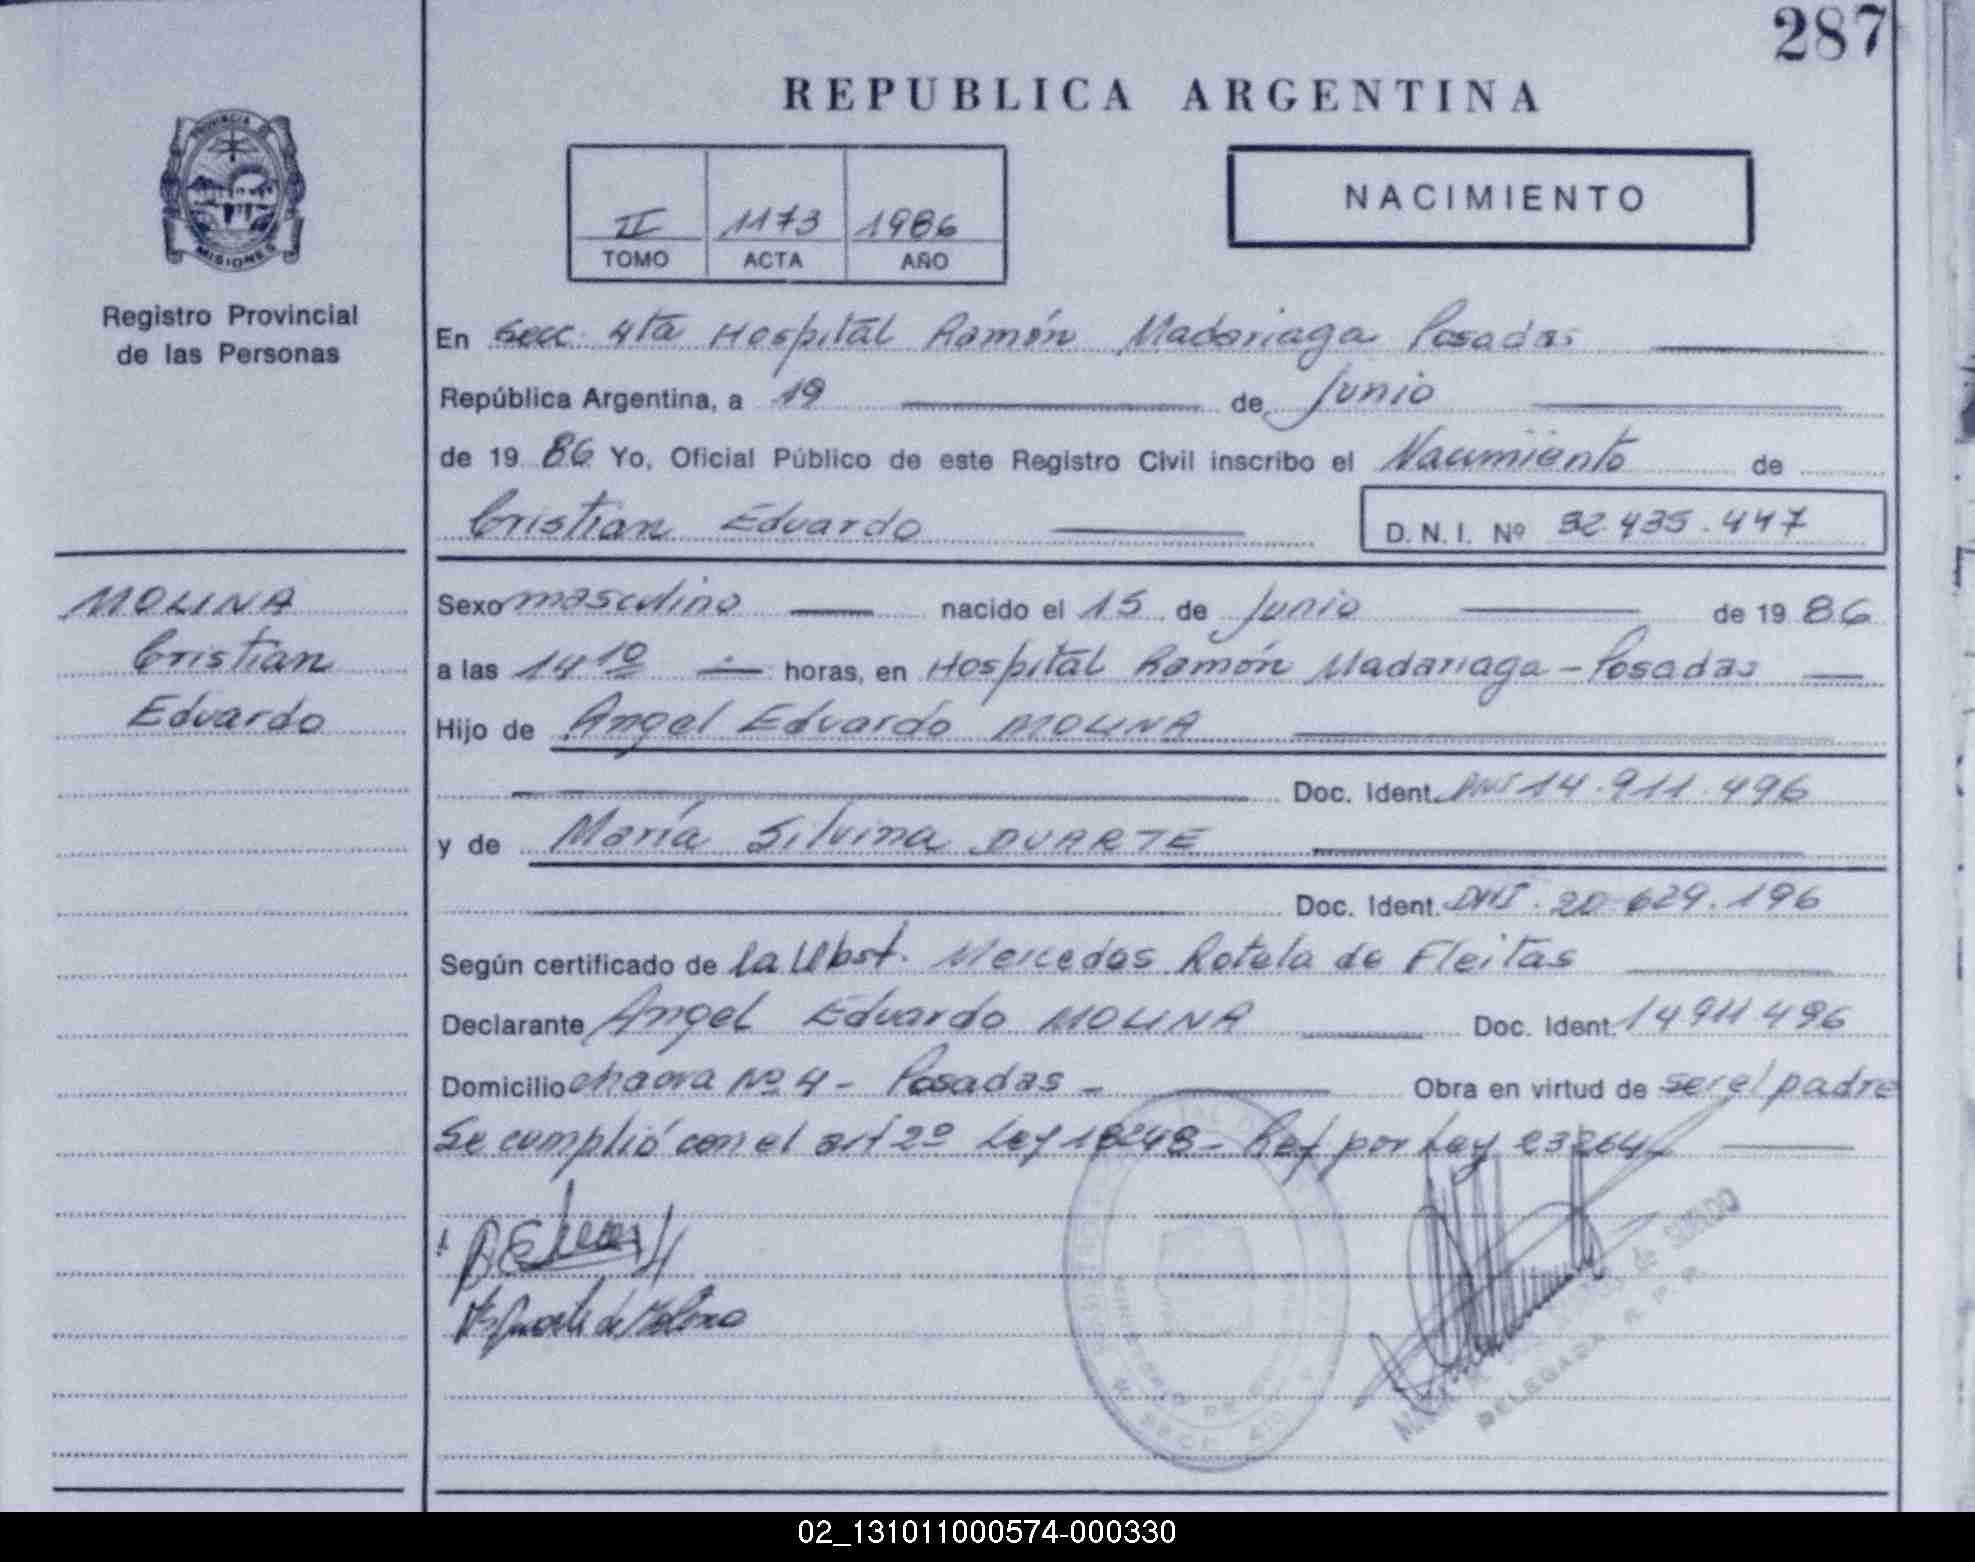 287
REPUBLICA ARGENTINA
PROVINCIA DE
MISIONES
Registro Provincial
de las Personas
II 1173 1986
TOMO ACTA AÑO
NACIMIENTO
En Secc. 4ta Hospital Ramón Madariaga Posadas
República Argentina, a 19 de Junio
de 19 86 Yo, Oficial Público de este Registro Civil inscribo el Nacimiento de
Cristian Eduardo
D. N. I. Nº 32.435.447
MOLINA
Cristian
Eduardo
Sexo masculino nacido el 15 de Junio de 19 86
a las 14 10 horas, en Hospital Ramón Madariaga - Posadas
Hijo de Angel Eduardo MOLINA
Doc. Ident. DNI 14.911.496
y de María Silvina DUARTE
Doc. Ident. DNI. 20.629.196
Según certificado de la Obst. Mercedes Rotela de Fleitas
Declarante Angel Eduardo MOLINA Doc. Ident. 14911496
Domicilio chacra Nº 4 - Posadas - Obra en virtud de ser el padre
Se cumplió con el art 2º Ley 18248 - Ref por Ley 23264
de Molina
DELEGADA R. P. P.
02_131011000574-000330